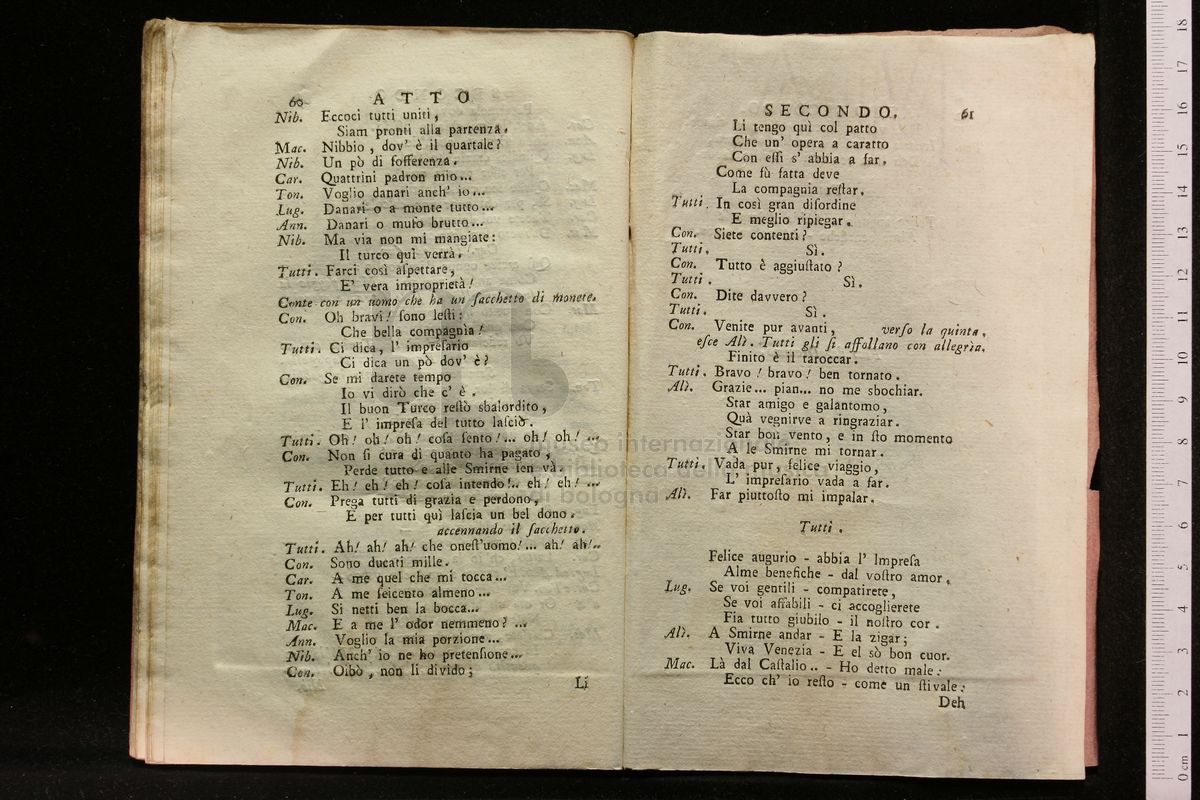 60 ATTO
Nib. Eccoci tutti uniti,
Siam pronti alla partenza.
Mac. Nibbio, dov' è il quartale?
Nib. Un pò di sofferenza.
Car. Quattrini padron mio...
Ton. Voglio danari anch' io...
Lug. Danari o a monte tutto...
Ann. Danari o muso brutto...
Nib. Ma via non mi mangiate:
Il turco quì verrà.
Tutti. Farci così aspettare,
E' vera improprietà!
Conte con un uomo che ha un sacchetto di monete.
Con. Oh bravi! sono lesti:
Che bella compagnìa!
Tutti. Ci dica, l' impresario
Ci dica un pò dov' è?
Con. Se mi darete tempo
Io vi dirò che c' è.
Il buon Turco restò sbalordito,
E l' impresa del tutto lasciò.
Tutti. Oh! oh! oh! cosa sento!... oh! oh! ...
Con. Non si cura di quanto ha pagato,
Perde tutto e alle Smirne sen và.
Tutti. Eh! eh! eh! cosa intendo!.. eh! eh! ...
Con. Prega tutti di grazia e perdono,
E per tutti quì lascia un bel dono.
accennando il sacchetto.
Tutti. Ah! ah! ah! che onest'uomo!... ah! ah!..
Con. Sono ducati mille.
Car. A me quel che mi tocca...
Ton. A me seicento almeno...
Lug. Si netti ben la bocca...
Mac. E a me l' odor nemmeno? ...
Ann. Voglio la mia porzione...
Nib. Anch' io ne ho pretensione...
Con. Oibò, non li divido;
Li
SECONDO. 61
Li tengo quì col patto
Che un' opera a caratto
Con essi s' abbia a far.
Come fù fatta deve
La compagnia restar.
Tutti. In così gran disordine
E meglio ripiegar.
Con. Siete contenti?
Tutti. Sì.
Con. Tutto è aggiustato?
Tutti. Sì.
Con. Dite davvero?
Tutti. Sì.
Con. Venite pur avanti, verso la quinta,
esce Alì. Tutti gli si affollano con allegrìa.
Finito è il taroccar.
Tutti. Bravo! bravo! ben tornato.
Alì. Grazie... pian... no me sbochiar.
Star amigo e galantomo,
Quà vegnirve a ringraziar.
Star bon vento, e in sto momento
A le Smirne mi tornar.
Tutti. Vada pur, felice viaggio,
L' impresario vada a far.
Alì. Far piuttosto mi impalar.
Tutti.
Felice augurio - abbia l' Impresa
Alme benefiche - dal vostro amor.
Lug. Se voi gentili - compatirete,
Se voi affabili - ci accoglierete
Fia tutto giubilo - il nostro cor.
Alì. A Smirne andar - E la zigar;
Viva Venezia - E el sò bon cuor.
Mac. Là dal Castalio.. - Ho detto male:
Ecco ch' io resto - come un stivale:
Deh
museo internazionale
e biblioteca della musica
di bologna
0 cm 1 2 3 4 5 6 7 8 9 10 11 12 13 14 15 16 17 18